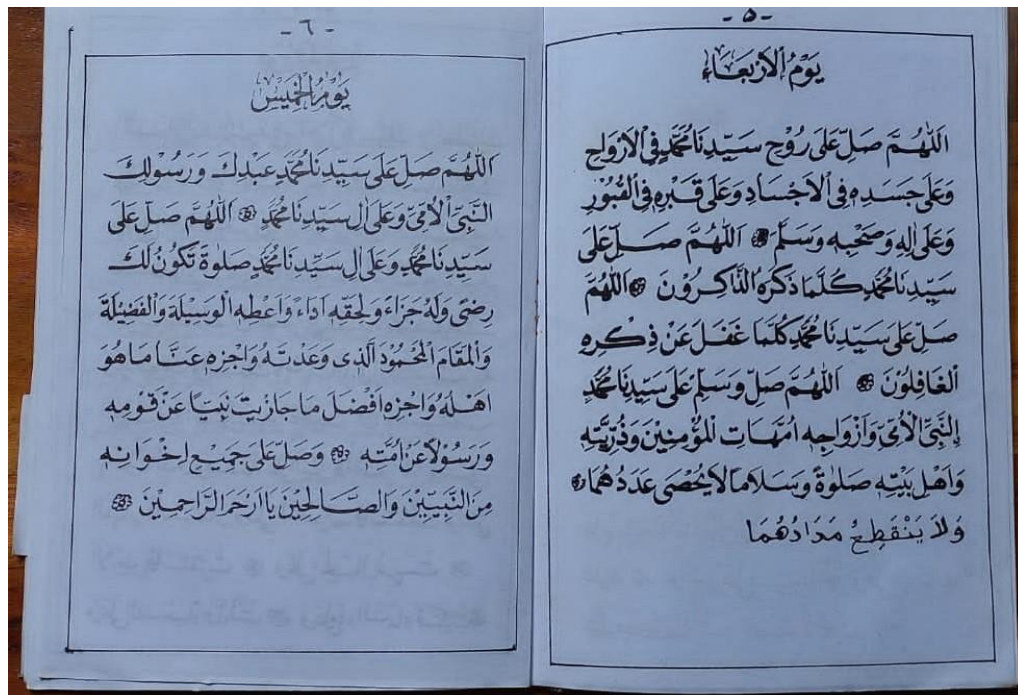 -٥-
يَوْمُ الْاَرْبَعَاءِ
اَللّٰهُمَّ صَلِّ عَلَى رُوْحِ سَيِّدِنَا مُحَمَّدٍ فِي الْاَرْوَاحِ
وَعَلَى جَسَدِهِ فِي الْاَجْسَادِ وَعَلَى قَبْرِهِ فِي الْقُبُوْرِ
وَعَلَى اٰلِهِ وَصَحْبِهِ وَسَلَّمْ ۞ اَللّٰهُمَّ صَلِّ عَلَى
سَيِّدِنَا مُحَمَّدٍ كُلَّمَا ذَكَرَهُ الذَّاكِرُوْنَ ۞ اَللّٰهُمَّ
صَلِّ عَلَى سَيِّدِنَا مُحَمَّدٍ كُلَّمَا غَفَلَ عَنْ ذِكْرِهِ
الْغَافِلُوْنَ ۞ اَللّٰهُمَّ صَلِّ وَسَلِّمْ عَلَى سَيِّدِنَا مُحَمَّدٍ
اِلنَّبِيِّ الْاُمِّيِّ وَاَزْوَاجِهِ اُمَّهَاتِ الْمُؤْمِنِيْنَ وَذُرِّيَّتِهِ
وَاَهْلِ بَيْتِهِ صَلٰوةً وَسَلَامًا لَا يُحْصَى عَدَدُهُمَا ۞
وَلَا يَنْقَطِعُ مَدَادُهُمَا
-٦-
يَوْمُ الْخَمِيْسِ
اَللّٰهُمَّ صَلِّ عَلَى سَيِّدِنَا مُحَمَّدٍ عَبْدِكَ وَرَسُوْلِكَ
النَّبِيِّ الْاُمِّيِّ وَعَلَى اٰلِ سَيِّدِنَا مُحَمَّدٍ ۞ اَللّٰهُمَّ صَلِّ عَلَى
سَيِّدِنَا مُحَمَّدٍ وَعَلَى اٰلِ سَيِّدِنَا مُحَمَّدٍ صَلٰوةً تَكُوْنُ لَكَ
رِضًى وَلَهُ جَزَاءً وَلِحَقِّهِ اَدَاءً وَاَعْطِهِ الْوَسِيْلَةَ وَالْفَضِيْلَةَ
وَالْمَقَامَ الْمَحْمُوْدَ الَّذِى وَعَدْتَهُ وَاجْزِهِ عَنَّا مَا هُوَ
اَهْلُهُ وَاجْزِهِ اَفْضَلَ مَا جَازَيْتَ نَبِيًّا عَنْ قَوْمِهِ
وَرَسُوْلًا عَنْ اُمَّتِهِ ۞ وَصَلِّ عَلَى جَمِيْعِ اِخْوَانِهِ
مِنَ النَّبِيِّيْنَ وَالصَّالِحِيْنَ يَا اَرْحَمَ الرَّاحِمِيْنَ ۞